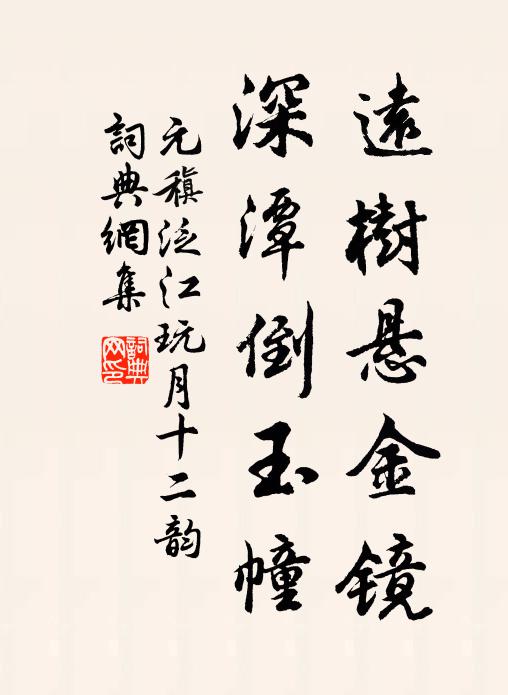 遠樹懸金鏡
深潭倒玉幢
元稹泛江玩月十二韵
詞典網集
詞典網印